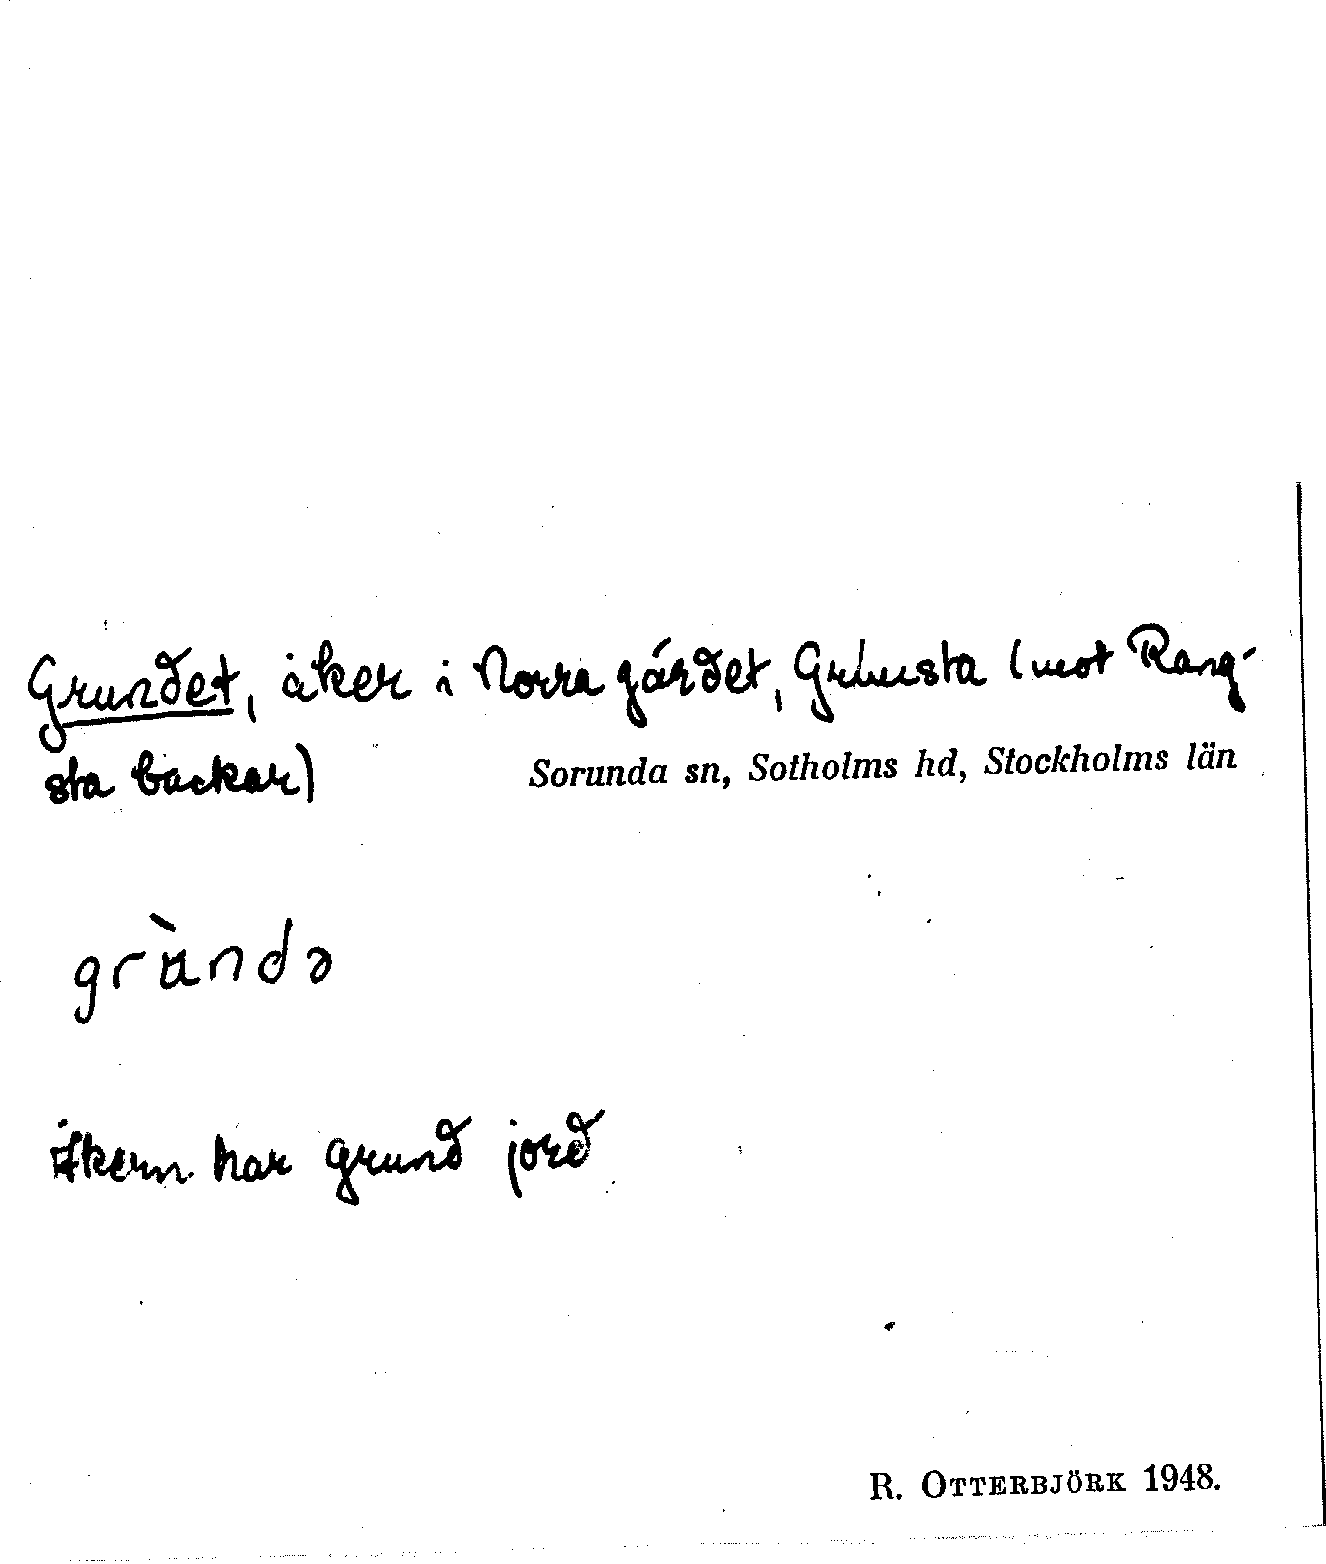 Grundet, åker i Norra gärdet, Grimsta (mot Rang-
sta backar)
Sorunda sn, Sotholms hd, Stockholms län
grùndə
Åkern har grund jord
R. OTTERBJÖRK 1948.